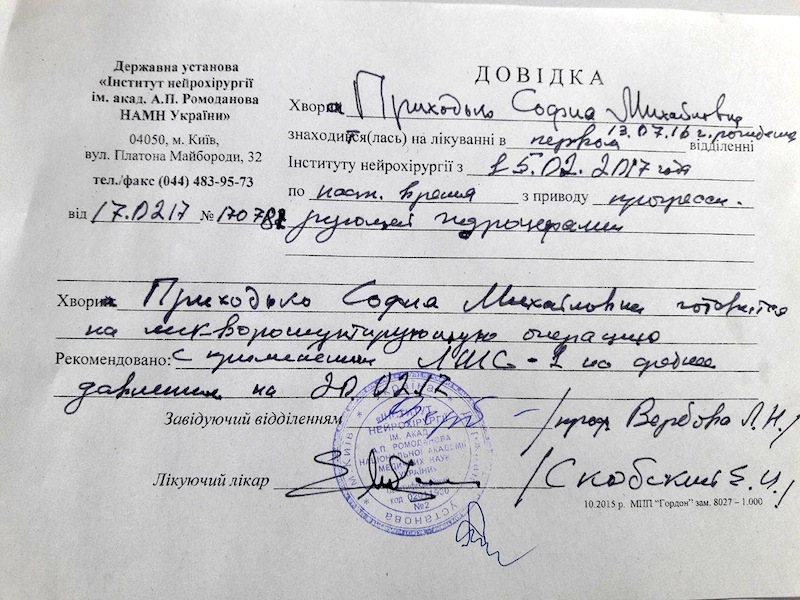 Державна установа
«Інститут нейрохірургії
ім. акад. А.П. Ромоданова
НАМН України»
04050, м. Київ,
вул. Платона Майбороди, 32
тел./факс (044) 483-95-73
від 17.0217 № 170782
ДОВІДКА
Хвора Приходько София Михайловна
13.07.16 г. рождения
знаходиться(лась) на лікуванні в первом відділенні
Інституту нейрохірургії з 15.02.2017 года
по наст. время з приводу прогресси-
рующей гидроцефалии
Хвора Приходько София Михайловна готовится
на ликворошунтирующую операцию
Рекомендовано: с применением ЛШС-2 на среднее
давление на 20.0217
Завідуючий відділенням /проф. Вербова Л.Н/
Лікуючий лікар /Скобский Е.И/
10.2015 р. МПП "Гордон" зам. 8027 – 1.000
Україна
м. Київ
НЕЙРОХІРУРГІЇ
ІМ. АКАД.
А.П. РОМОДАНОВА
НАЦІОНАЛЬНОЇ АКАДЕМІЇ
МЕДИЧНИХ НАУК
УКРАЇНИ
код
№2
Установа